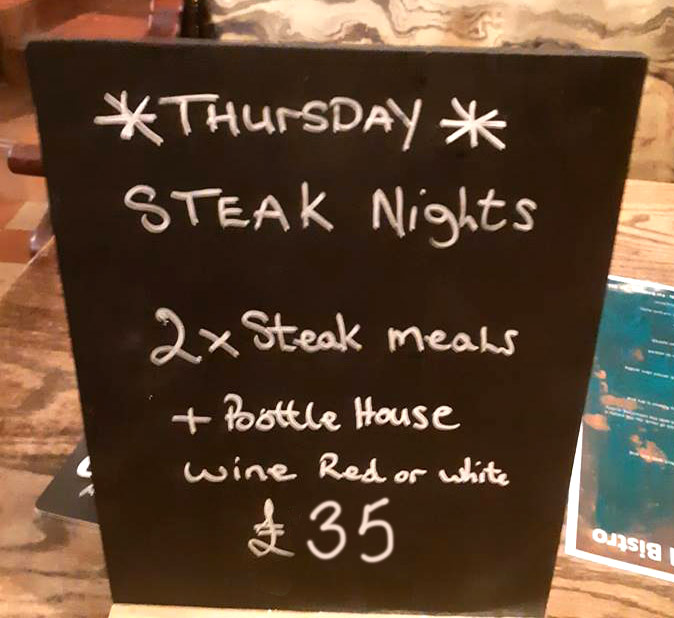 *THURSDAY*
STEAK Nights
2 x Steak meals
+ Boottle House
wine Red or white
£35
Bistro